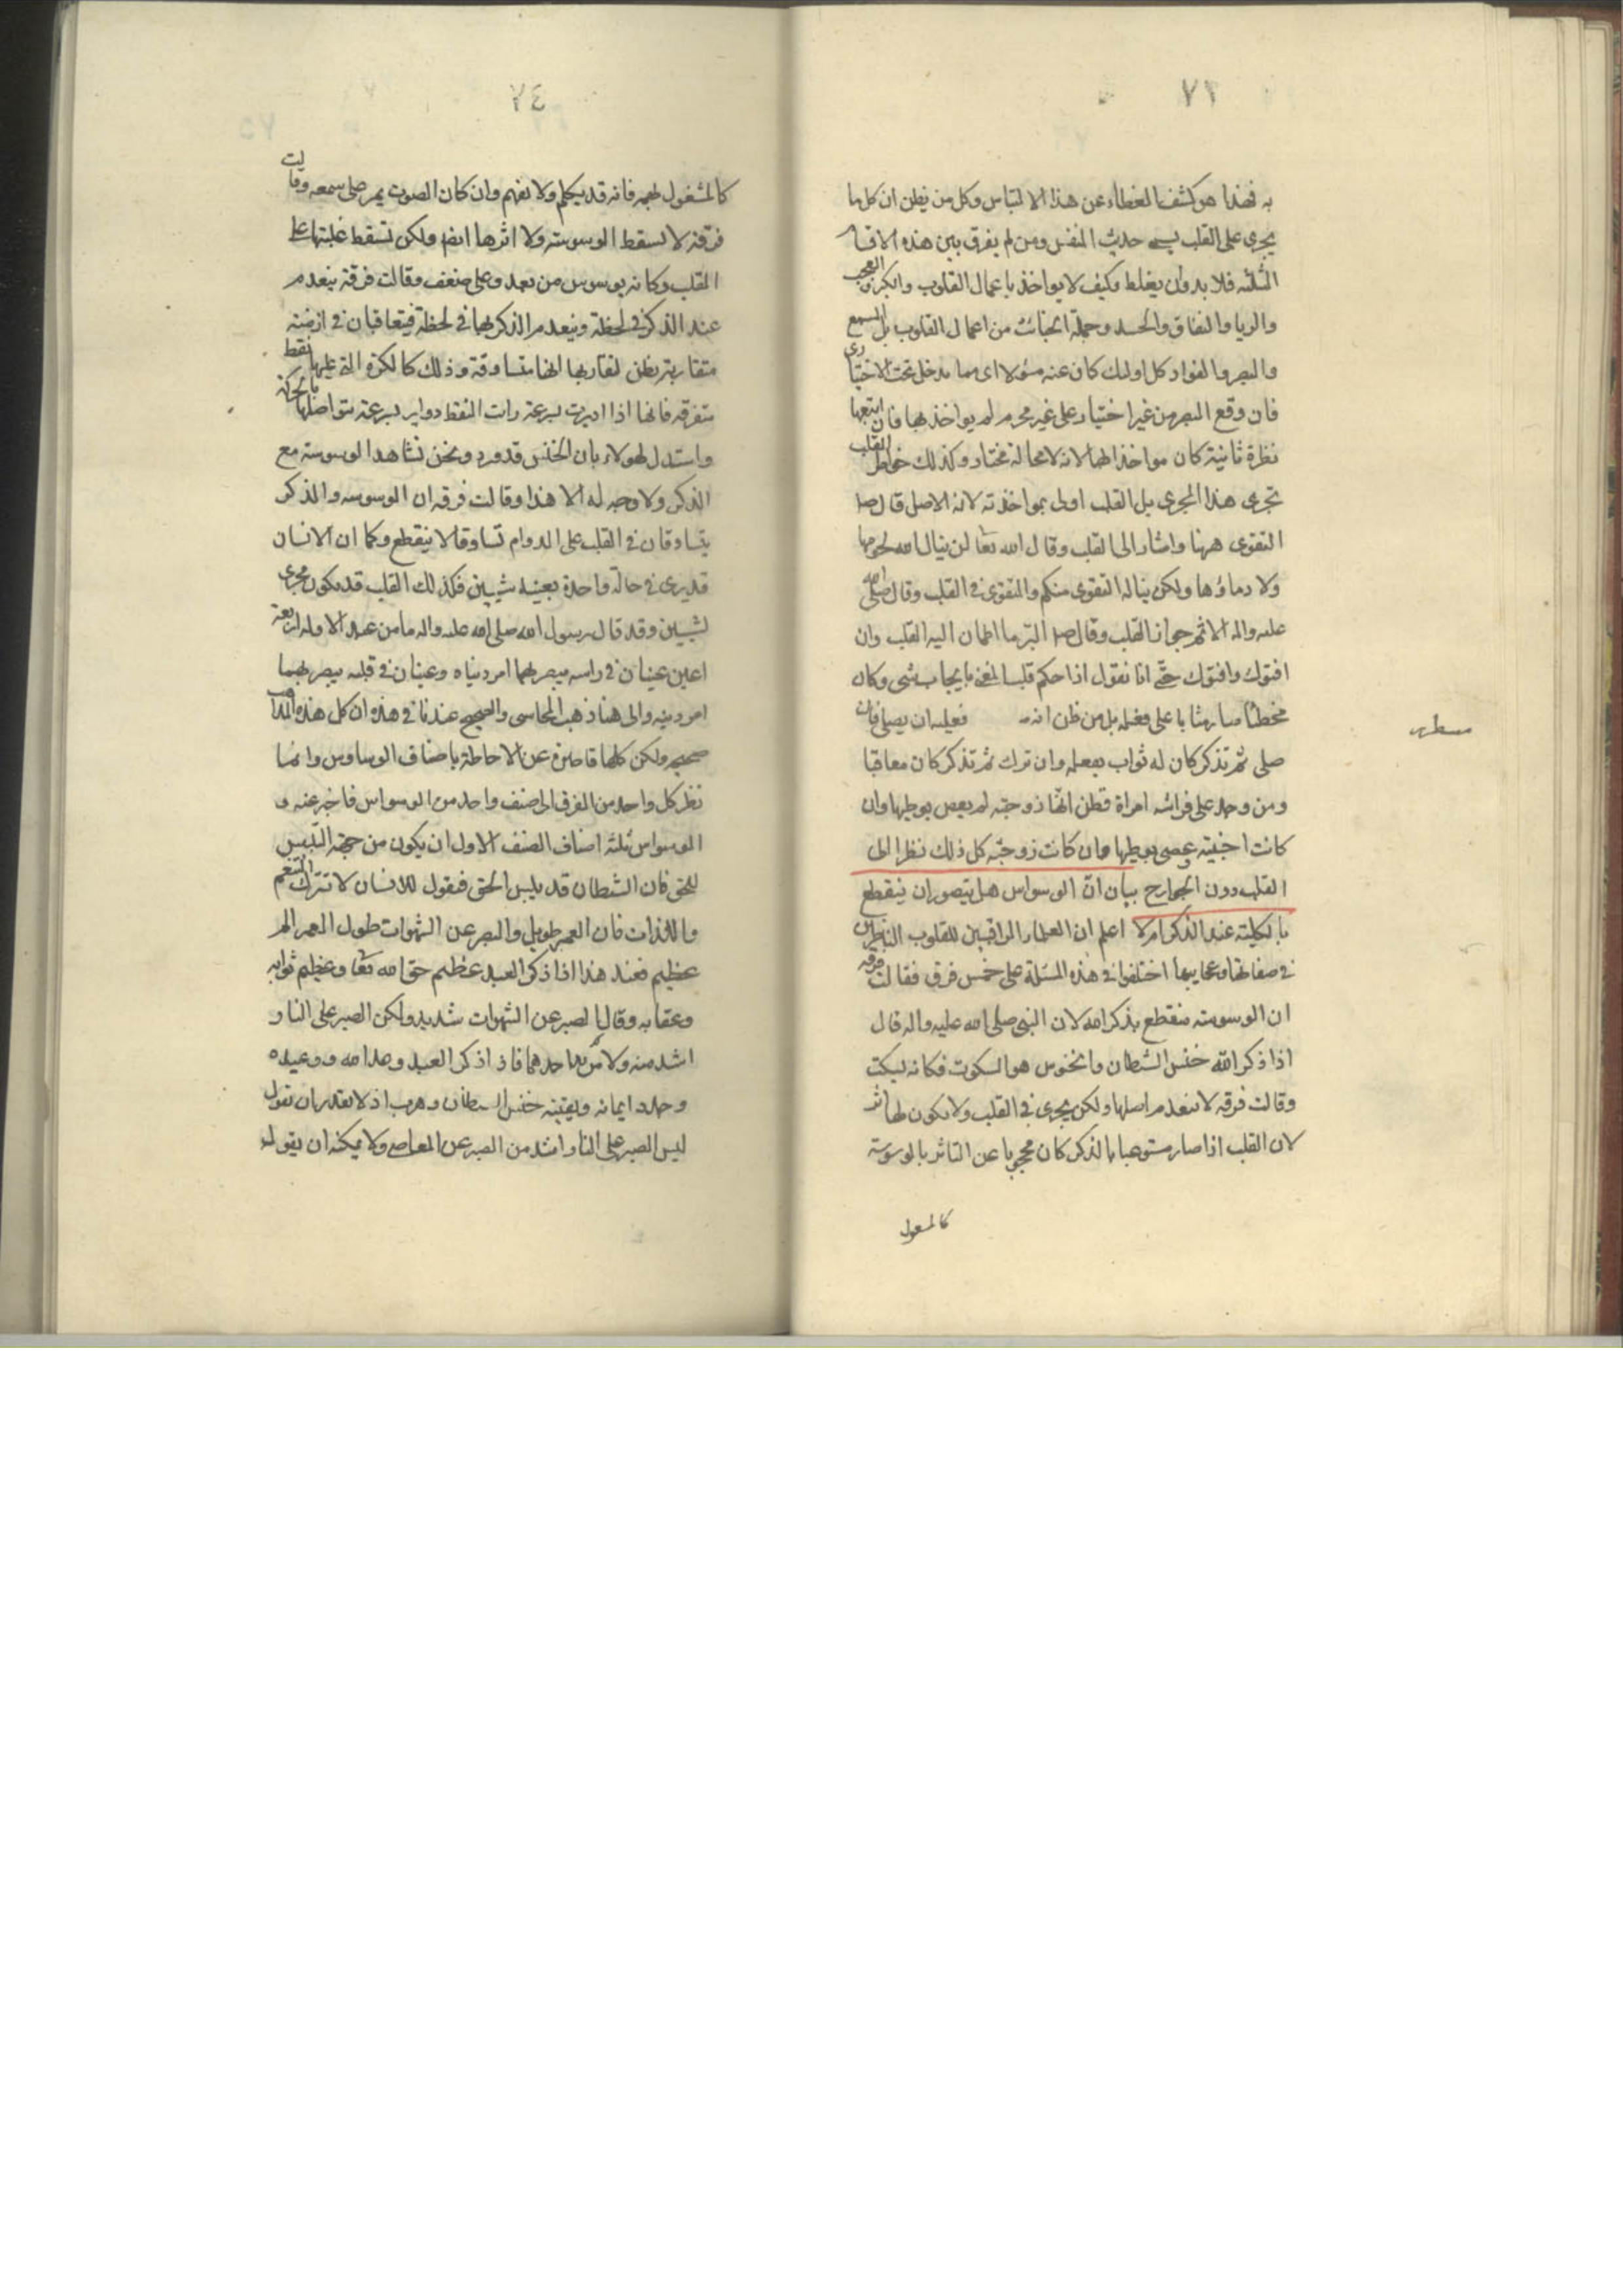 ٧٣
به فهذا هو كشف الغطاء عن هذا الالتباس وكل من يظن ان كل ما
يجرى على القلب يسمى حديث النفس ومن لم يفرق بين هذه الاقسام
الثلثه فلا بد وان يغلط وكيف لا يواخذ باعمال القلوب والكبر والعجب
والريا والنفاق والحسد وجملة الخبائث من اعمال القلوب بل السمع
والبصر والفواد كل اولئك كان عنه مسؤلا اى مما يدخل تحت الاختيارى
فان وقع البصر من غير اختيار على غير محرم لم يواخذ بها فان اتبعها
نظرة ثانية كان مواخذا بها لانه لا محالة مختار وكذلك خواطر القلب
تجرى هذا المجرى بل القلب اولى بمواخذته لانه الاصل قال ص
التقوى ههنا واشار الى القلب وقال الله تعا لن ينال الله لحومها
ولا دماؤها ولكن يناله التقوى منكم والتقوى فى القلب وقال صلى الله
عليه واله الاثم حواز القلب وقال ص البر ما اطمان اليه القلب وان
افتوك وافتوك حتى انا نقول اذا حكم قلب المفتى بايجاب شى وكان
مخطئا صار مثابا على فعله بل من ظن انه فعليه ان يصلى فان
صلى ثم تذكر كان له ثواب بفعله وان ترك ثم تذكر كان معاقبا
ومن وجد على فراشه امراة فظن انها زوجته لم يعص بوطيها وان
كانت اجنبية عصى بوطيها وان كانت زوجته كل ذلك نظرا الى
القلب دون الجوارح بيان ان الوسواس هل يتصور ان ينقطع
بالكلية عند الذكر ام لا اعلم ان العلماء المراقبين للقلوب الناظرين
فى صفاتها وعجايبها اختلفوا فى هذه المسئلة على خمس فرق فقالت فرقه
ان الوسوسته منقطع بذكر الله لان النبى صلى الله عليه واله قال
اذا ذكر الله خنس الشيطان والخنوس هو السكوت فكانه يسكت
وقالت فرقه لا ينعدم اصلها ولكن يجرى فى القلب ولا يكون لها اثر
لان القلب اذا صار مستوعبا بالذكر كان محجوبا عن التاثر بالوسوسة
٧٤
كالمشغول بهمه فانه قد يكلم ولا يفهم وان كان الصوت يمر على سمعه وقالت
فرقة لا يسقط الوسوسته ولا اثرها ايضا ولكن تسقط غلبتها على
القلب وكانه يوسوس من بعد وعلى ضعف وقالت فرقة ينعدم
عند الذكر فى لحظة وينعدم الذكر بها فى لحظة فيتعاقبان فى ازمنته
متقاربة يظن لتقاربها انها متساوقة وذلك كالكرة التى عليها نقط
متفرقه فانها اذا اديرت بسرعة رات النقط دواير بسرعة تواصلها بالحركة
واستدل هولاء بان الخنس قد ورد ونحن نشاهد الوسوسته مع
الذكر ولا وجه له الا هذا وقالت فرقه ان الوسوسه والذكر
يتساوقان فى القلب على الدوام تساوقا لا ينقطع وكما ان الانسان
قد يرى فى حالة واحدة بعينه شيئين فكذلك القلب قد يكون مجرى
لشيئين وقد قال رسول الله صلى الله عليه واله ما من عبد الا وله اربعة
اعين عينان فى راسه يبصر بهما امر دنياه وعينان فى قلبه يبصر بهما
امر دينه والى هذا ذهب المحاسبى والصحيح عندنا فى هذه ان كل هذه المذاهب
صحيحه ولكن كلها قاصرة عن الاحاطة باصناف الوساوس وانما
نظر كل واحد من الفرق الى صنف واحد من الوسواس فاخبر عنه و
الوسواس ثلثه اصناف الصنف الاول ان يكون من جهة التلبيس
للحق فان الشيطان قد يلبس الحق فيقول للانسان لا تترك التنعم
واللذات فان العمر طويل والصبر عن الشهوات طول العمر الم
عظيم فعند هذا اذا ذكر العبد عظيم حق الله تعا وعظيم ثوابه
وعقابه وقال الصبر عن الشهوات شديد ولكن الصبر على النار
اشد منه ولا بد من احدهما فاذا ذكر العبد وعد الله ووعيده
وجدد ايمانه ويقينه خنس الشيطان وهرب اذ لا يقدر ان يقول
ليس الصبر على النار اشد من الصبر عن المعاصى ولا يمكنه ان يقول